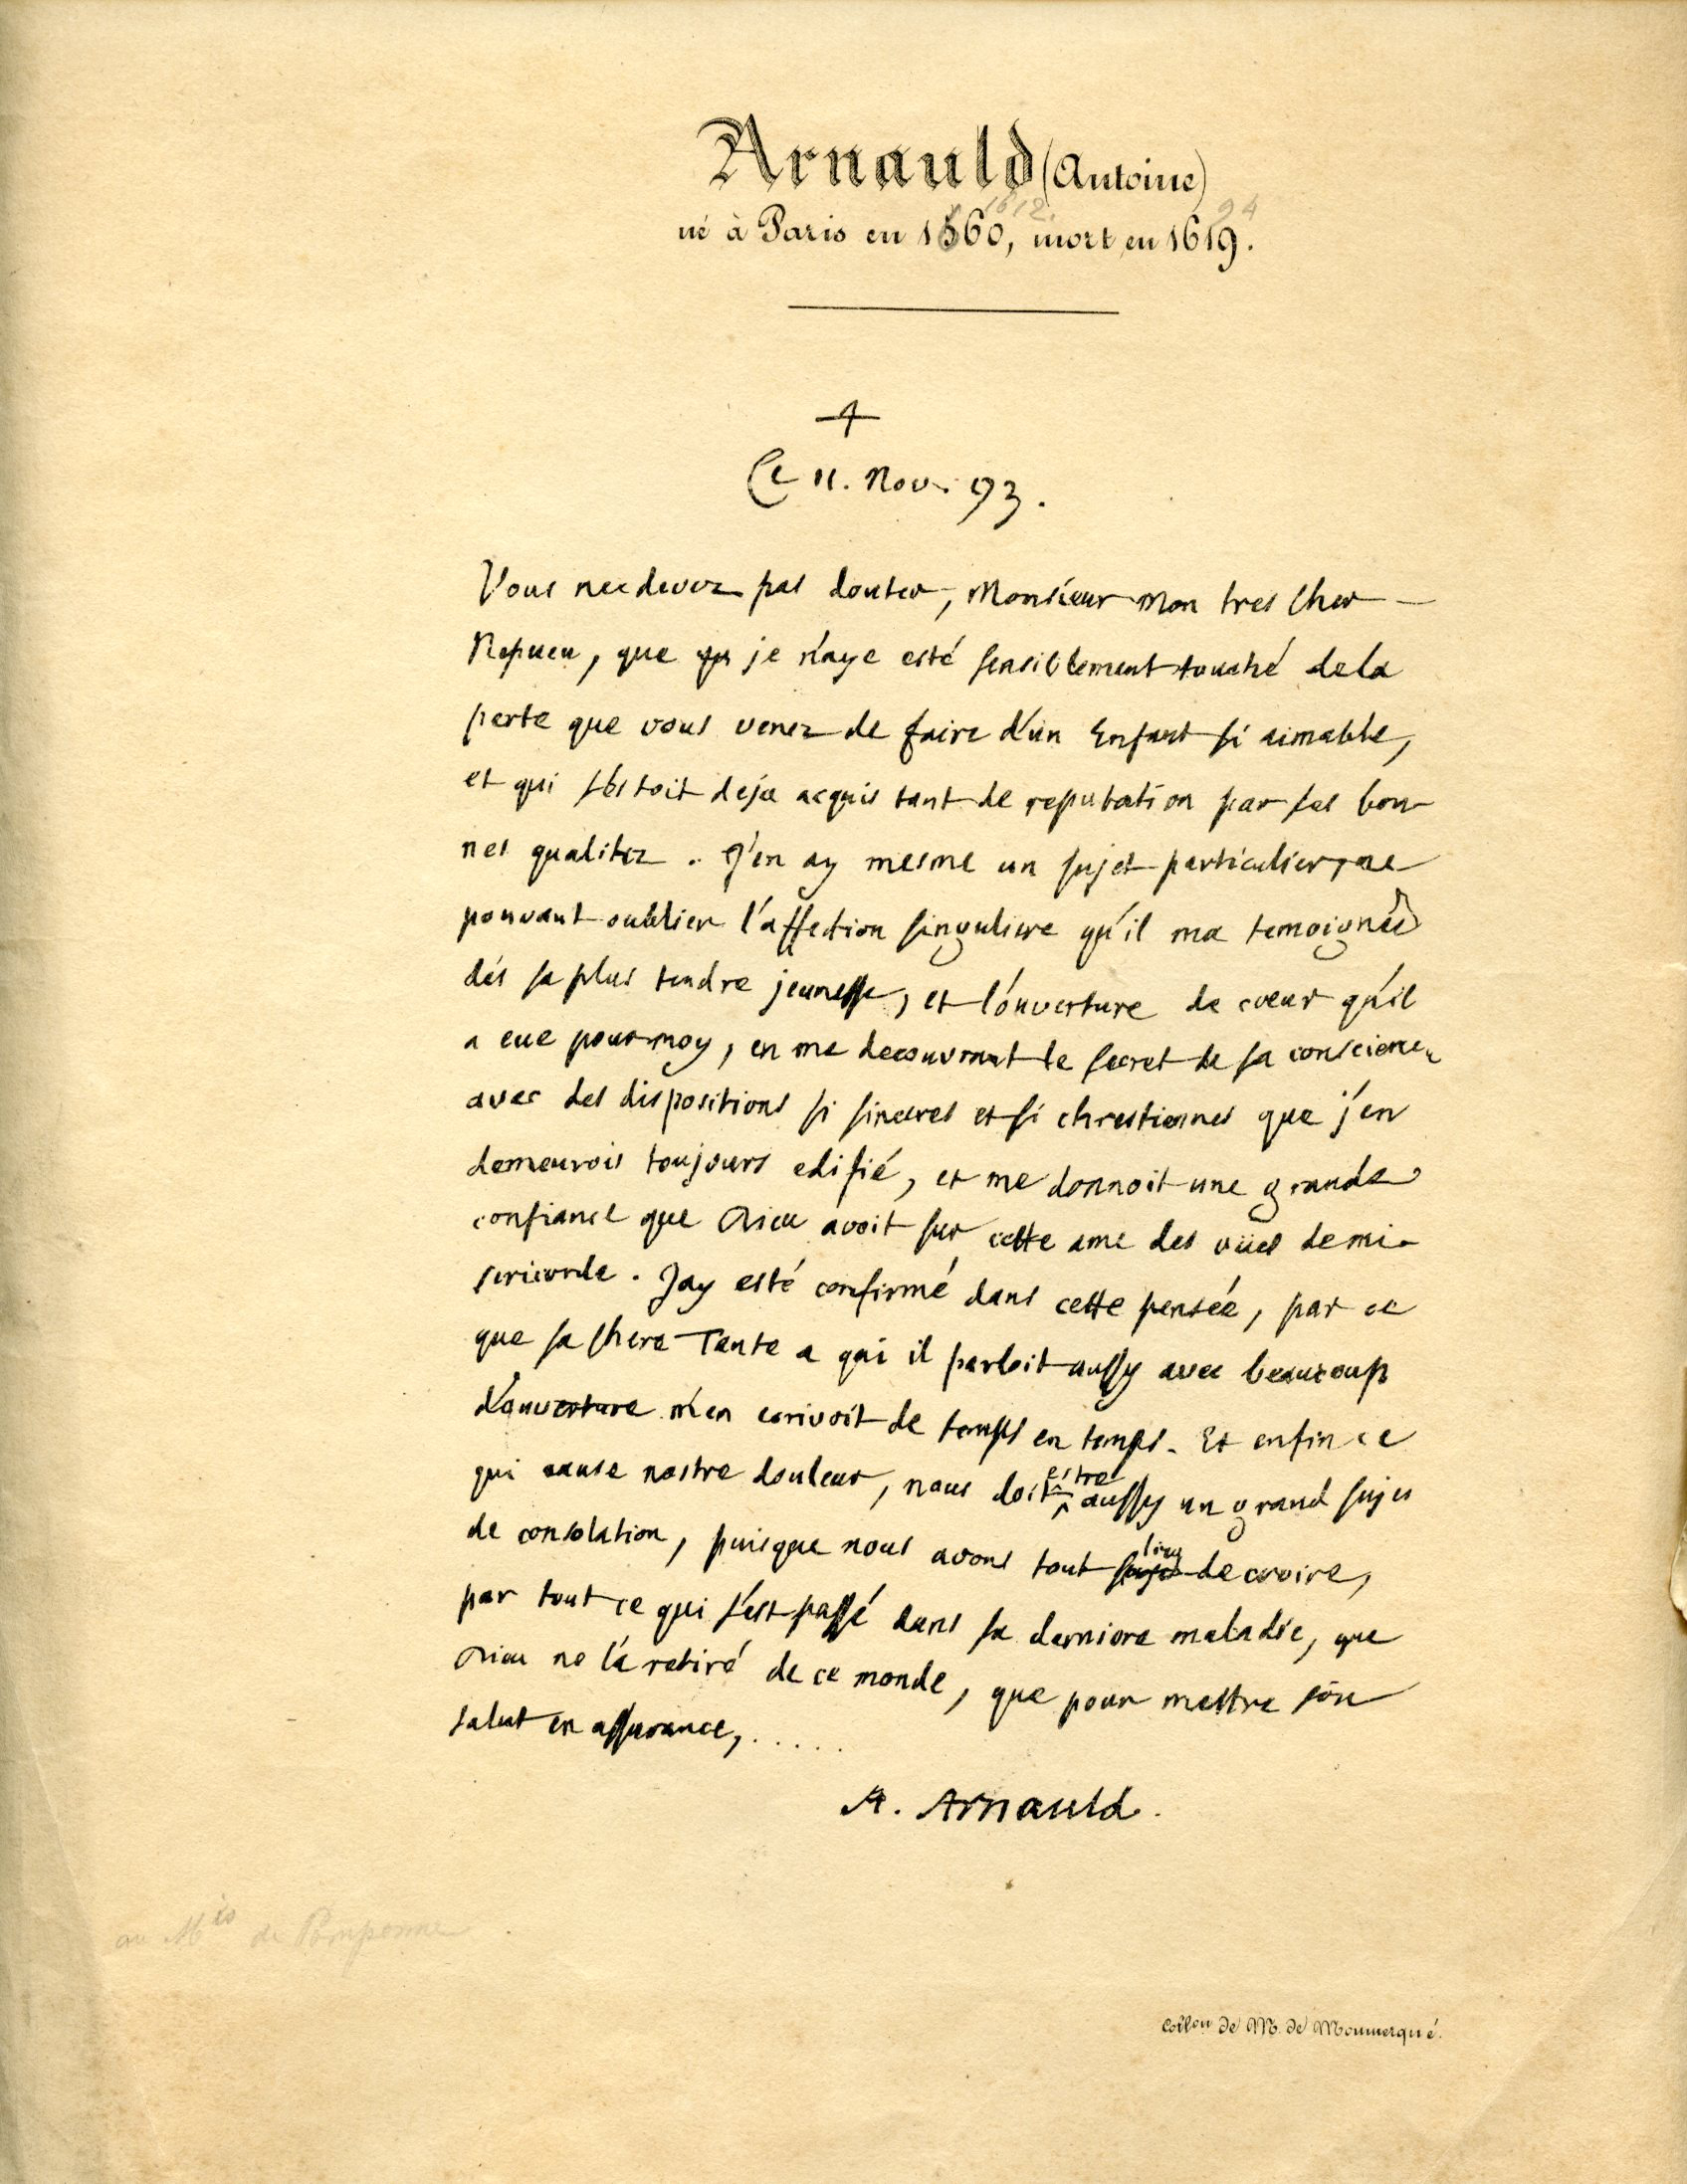 Arnauld (Antoine)
1612. 94
né à Paris en 1560, mort en 1619.
Ce 11. Nov. 93.
Vous ne devez pas douter, Monsieur mon tres cher
Nepueu, que je n'aye esté sensiblement touché de la
perte que vous venez de faire d'un Enfant si aimable,
et qui s'estoit deja acquis tant de reputation par ses bon-
nes qualitez. J'en ay mesme un sujet particulier, ne
pouvant oublier l'affection singuliere qu'il ma temoignée
dés sa plus tendre jeunesse, et l'ouverture de coeur qu'il
a eue pour moy, en me decouvrant le secret de sa conscience
avec des dispositions si sinceres et si chrestiennes que j'en
demeurois toujours edifié, et me donnoit une grande
confiance que Dieu avoit sur cette ame des vües de mi-
sericorde. Jay esté confirmé dans cette pensée, par ce
que sa chere Tante a qui il parloit aussy avec beaucoup
d'ouverture m'en ecrivoit de temps en temps. Et enfin ce
qui cause nostre douleur, nous doit estre aussy un grand sujet
de consolation, puisque nous avons tout lieu de croire,
par tout ce qui s'est passé dans sa derniere maladie, que
Dieu ne l'a retiré de ce monde, que pour mettre son
salut en assurance, . . . . .
A. Arnauld.
au Mis de Pomponne
Collon de M. de Monmerqué.